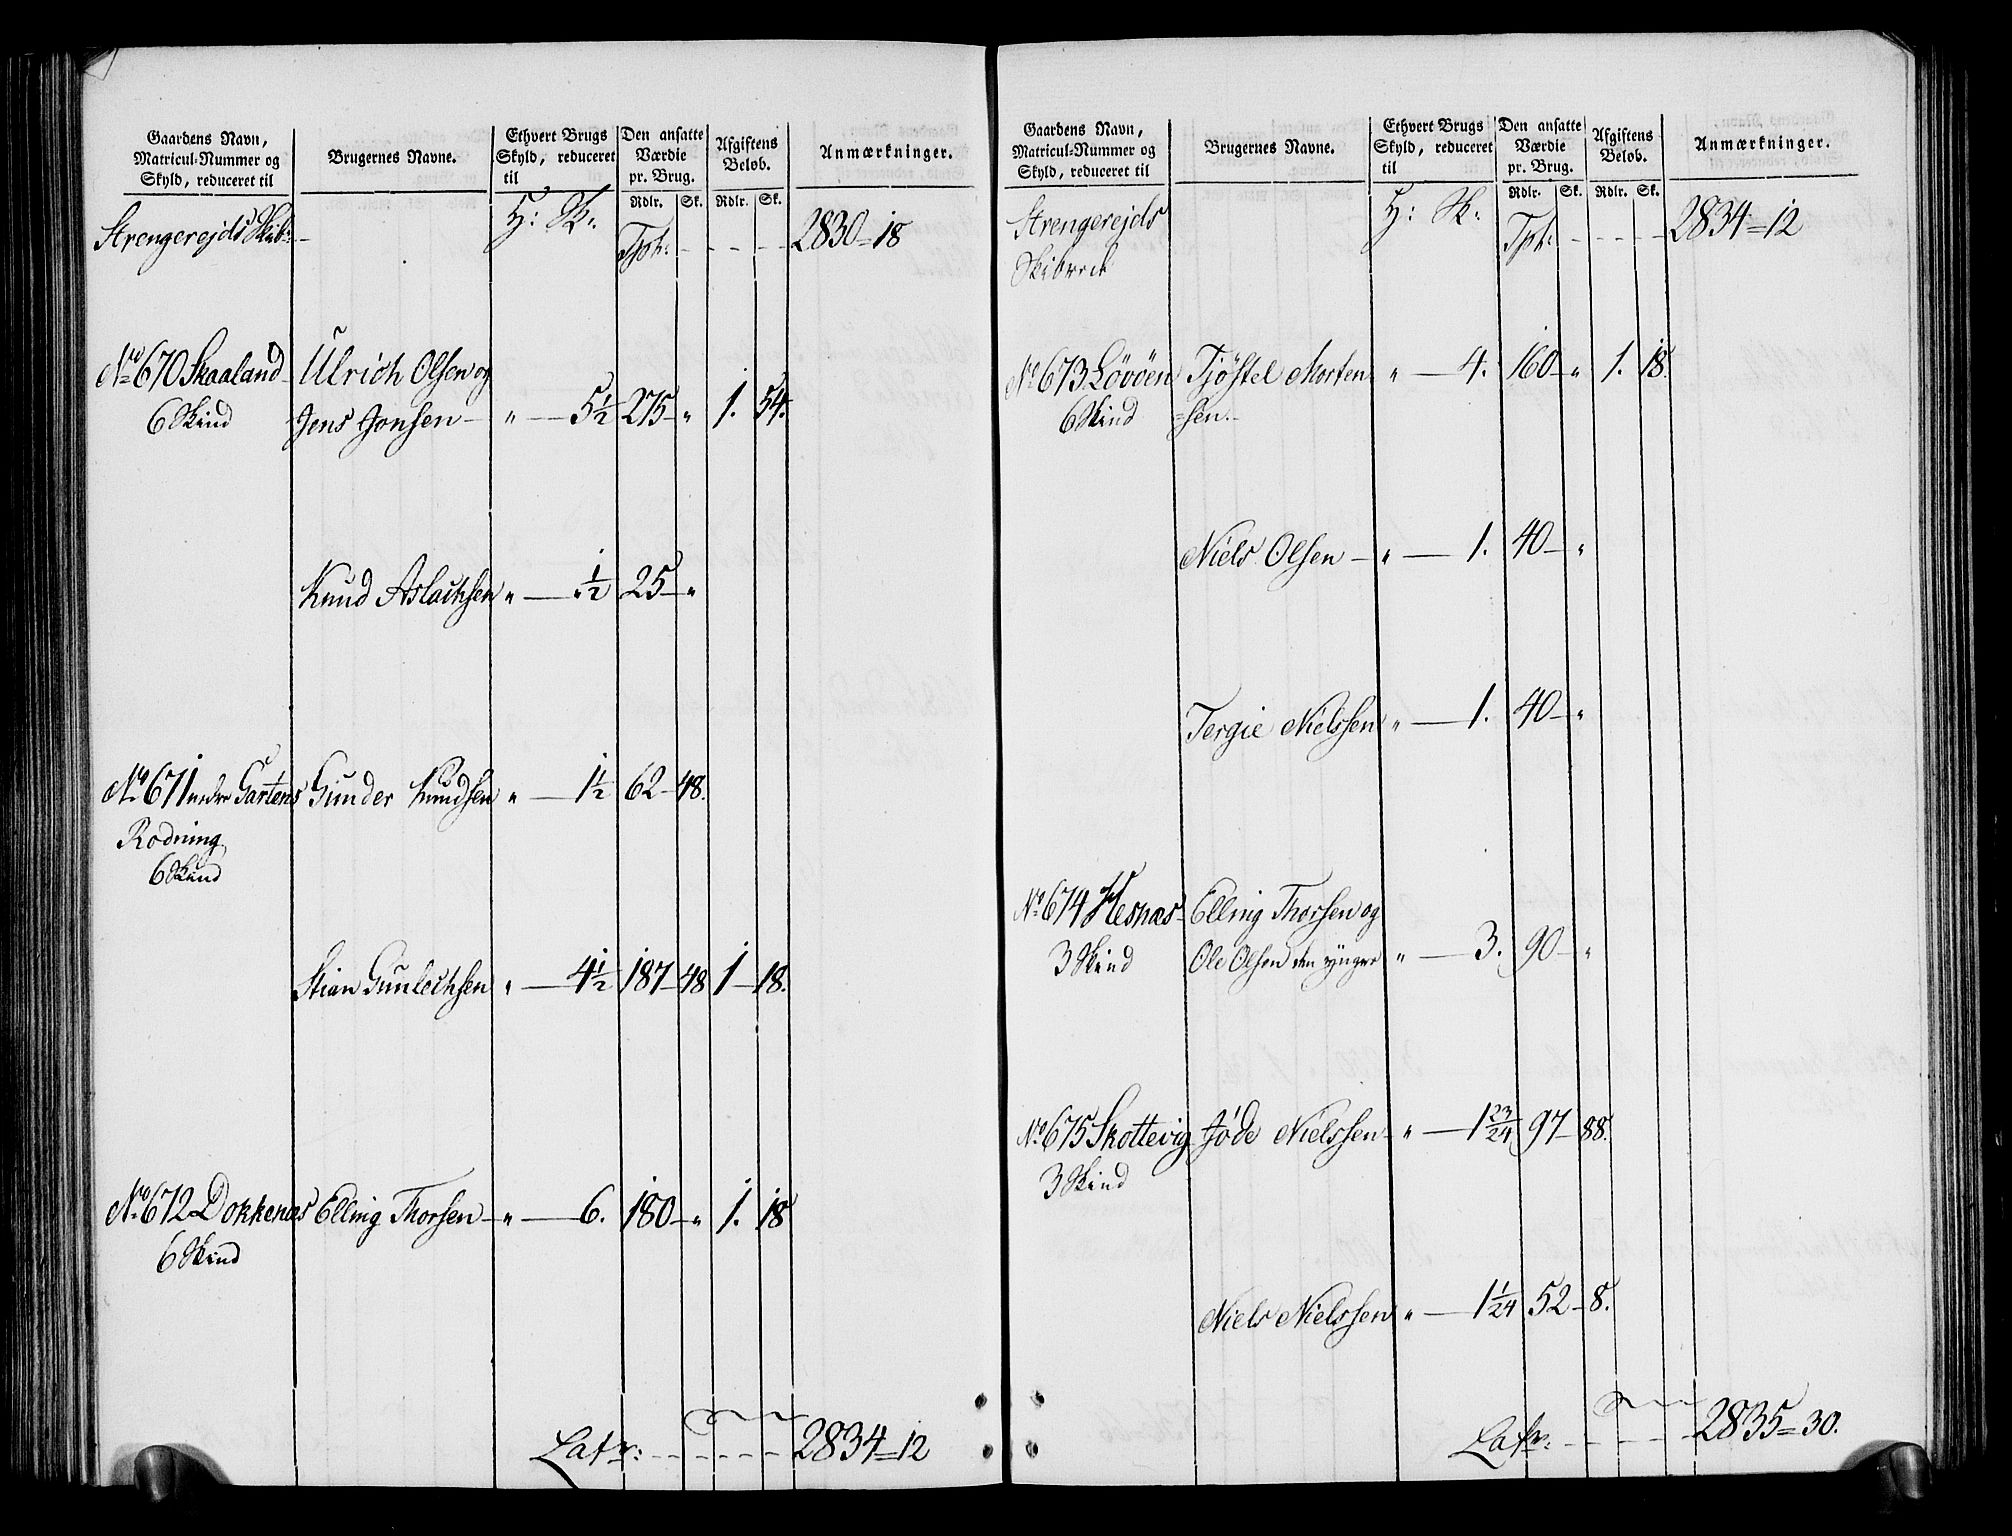 Gaardens Navn,
Matricul-Nummer og
Skyld, reduceret til
Brugernes Navne.
Ethvert Brugs
Skyld, reduceret
til
Den ansatte
Værdie
pr. Brug.
Afgiftens
Beløb.
Anmærkninger.
Rdlr. Sk. Rdlr. Sk.
Strengerejds Skib:
H: Sk:
Tpt: - - - - 2830 = 18
No 670 Skaaland Ulrich Olsen og
6 Skind Jens Jonsen „ 5½ 275 „ 1. 54.
Knud Aslachsen „ ½ 25 „
No 671 nedre Gartens Gunder Knudsen „ 1½ 62 48.
Rødning
6 Skind
Stian Gunlechsen „ 4½ 187 48 1 18.
No 672 Dokkenæs Elling Thorsen „ 6. 180 „ 1. 18
6 Skind
Latr: - - - - - 2834 = 12
Gaardens Navn,
Matricul-Nummer og
Skyld, reduceret til
Brugernes Navne.
Ethvert Brugs
Skyld, reduceret
til
Den ansatte
Værdie
pr. Brug.
Afgiftens
Beløb.
Anmærkninger.
Rdlr. Sk. Rdlr. Sk.
Strengerejds
Skibrede
H: Sk:
Tpt: - - - - 2834 = 12
No 673 Løvøen Tjøstel Morten
6 Skind =sen. „ 4. 160 „ 1. 18.
Niels Olsen „ 1. 40 „
Tergie Nielssen „ 1. 40 „
No 674 Hesnæs Elling Thorsen og
3 Skind Ole Olsen den yngre „ 3. 90 „
No 675 Skottevig Jøde Nielssen „ 1 23/24 97 88.
3 Skind
Niels Nielssen „ 1 1/24 52 8.
Latr: - - - - - 2835 = 30.